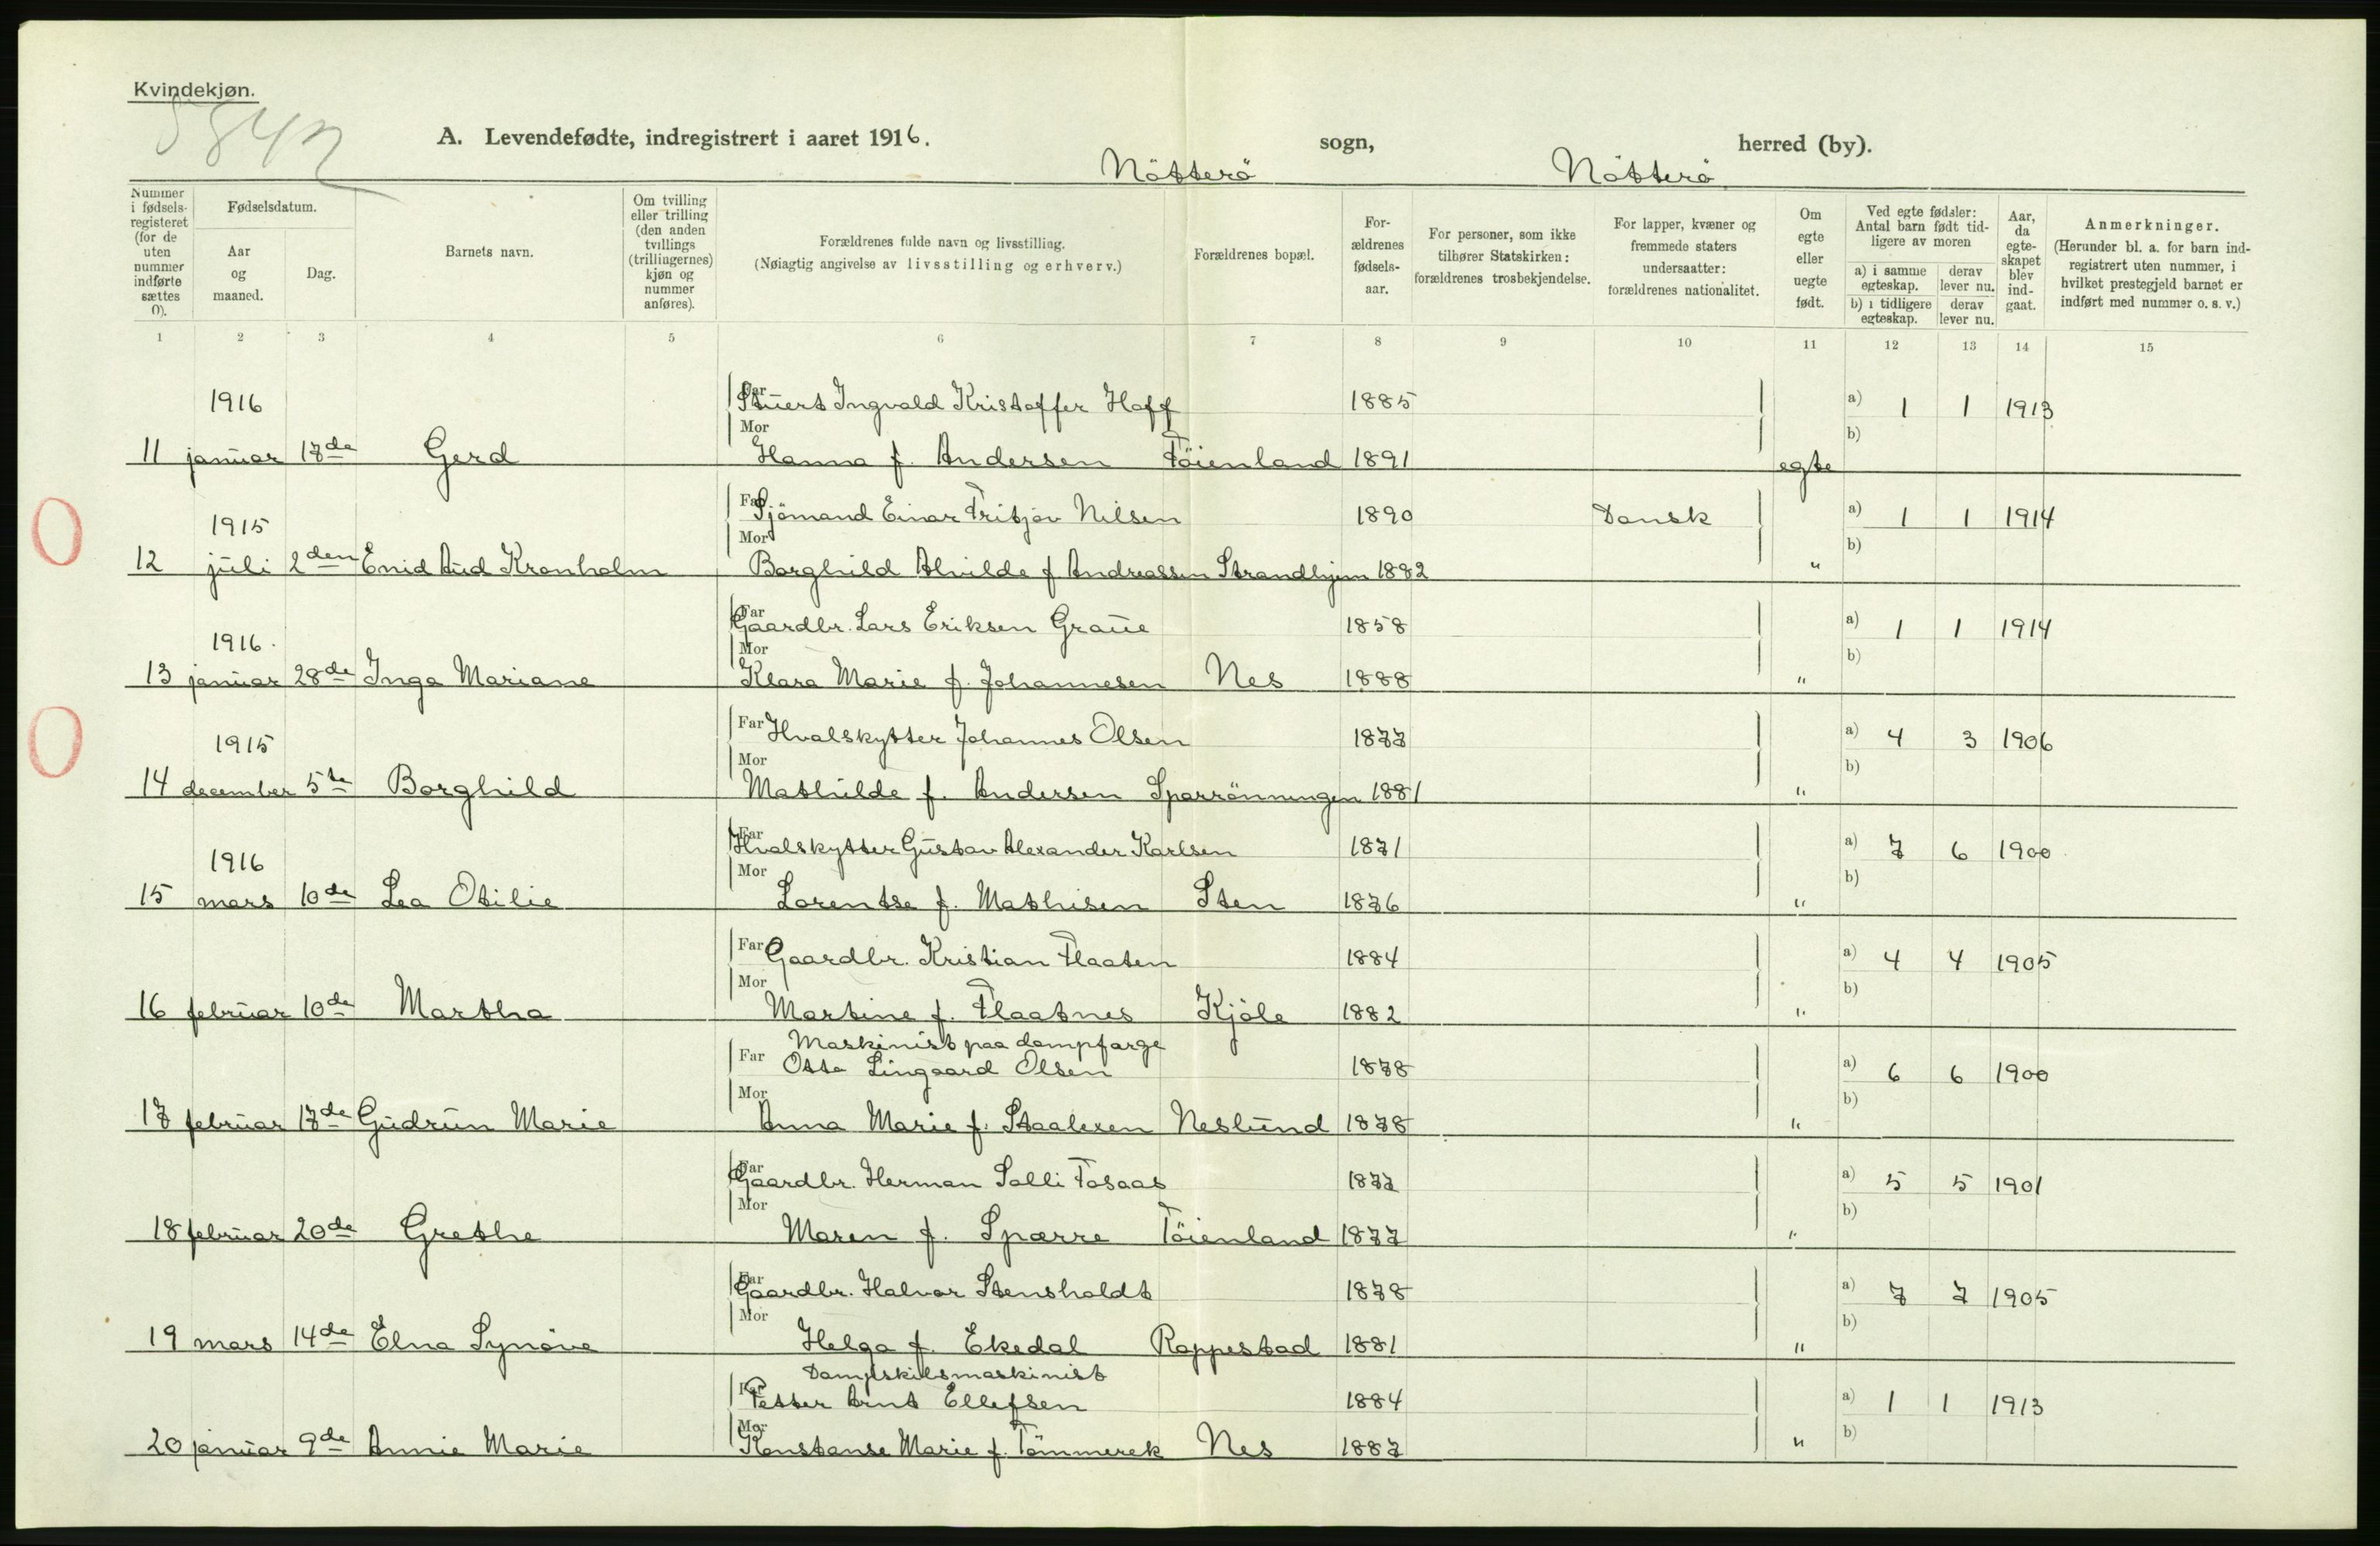 Kvindekjøn.
5842
A. Levendefødte, indregistrert i aaret 1916. Nötterö sogn, Nötterö herred (by).
Nummer i fødselsregisteret (for de uten nummer indførte sættes 0).
Fødselsdatum.
Aar og maaned.
Dag.
Barnets navn.
Om tvilling eller trilling (den anden tvillings (trillingernes) kjøn og nummer anføres).
Forældrenes fulde navn og livsstilling.
(Nøiagtig angivelse av livsstilling og erhverv.)
Forældrenes bopæl.
Forældrenes fødselsaar.
For personer, som ikke tilhører Statskirken: forældrenes trosbekjendelse.
For lapper, kvæner og fremmede staters undersaatter: forældrenes nationalitet.
Om egte eller uegte født.
Ved egte fødsler: Antal barn født tidligere av moren
a) i samme egteskap. derav lever nu.
b) i tidligere egteskap. derav lever nu.
Aar, da egteskapet blev indgaat.
Anmerkninger.
(Herunder bl. a. for barn indregistrert uten nummer, i hvilket prestegjeld barnet er indført med nummer o. s. v.)
1 2 3 4 5 6 7 8 9 10 11 12 13 14 15
1916 Far Stuert Ingvald Kristoffer Hoff 1885 a) 1 1 1913
11 januar 17de Gerd Mor Hanna f. Andersen Töienland 1891 egte b)
1915 Far Sjömand Einar Fritjov Nilsen 1890 Dansk a) 1 1 1914
12 juli 2den Enid Aud Kronholm Mor Borghild Alvilde f Andreassen Strandhjem 1882 " b)
1916. Far Gaardbr. Lars Eriksen Graue 1858 a) 1 1 1914
13 januar 28de Inga Mariane Mor Klara Marie f. Johannesen Nes 1888 " b)
1915 Far Hvalskytter Johannes Olsen 1877 a) 4 3 1906
14 december 5te Borghild Mor Mathilde f. Andersen Sparrönningen 1881 " b)
1916 Far Hvalskytter Gustav Alexander Karlsen 1871 a) 7 6 1900
15 mars 10de Lea Otilie Mor Lorentse f. Mathisen Sten 1876 " b)
Far Gaardbr. Kristian Flaaten 1884 a) 4 4 1905
16 februar 10de Martha Mor Martine f. Flaatnes Kjöle 1882 " b)
Maskinist paa dampfarge
Far Otto Lingaard Olsen 1878 a) 6 6 1900
17 februar 17de Gudrun Marie Mor Anna Marie f. Staalesen Neslund 1878 " b)
Far Gaardbr. Herman Salli Fosaas 1872 a) 5 5 1901
18 februar 20de Grethe Mor Maren f. Sparre Töienland 1877 " b)
Far Gaardbr. Halvor Stensholdt 1878 a) 7 7 1905
19 mars 14de Elna Synöve Mor Helga f. Ekedal Roppestad 1881 " b)
Dampskibsmaskinist
Far Petter Arnt Ellefsen 1884 a) 1 1 1913
20 januar 9de Annie Marie Mor Konstanse Marie f. Tömmerek Nes 1887 " b)